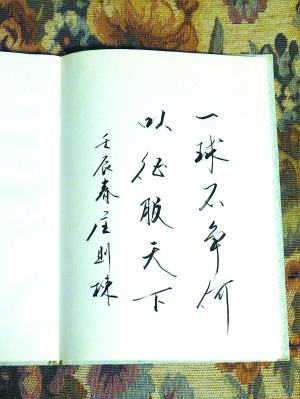 一球不争何
以征服天下
壬辰春庄则栋